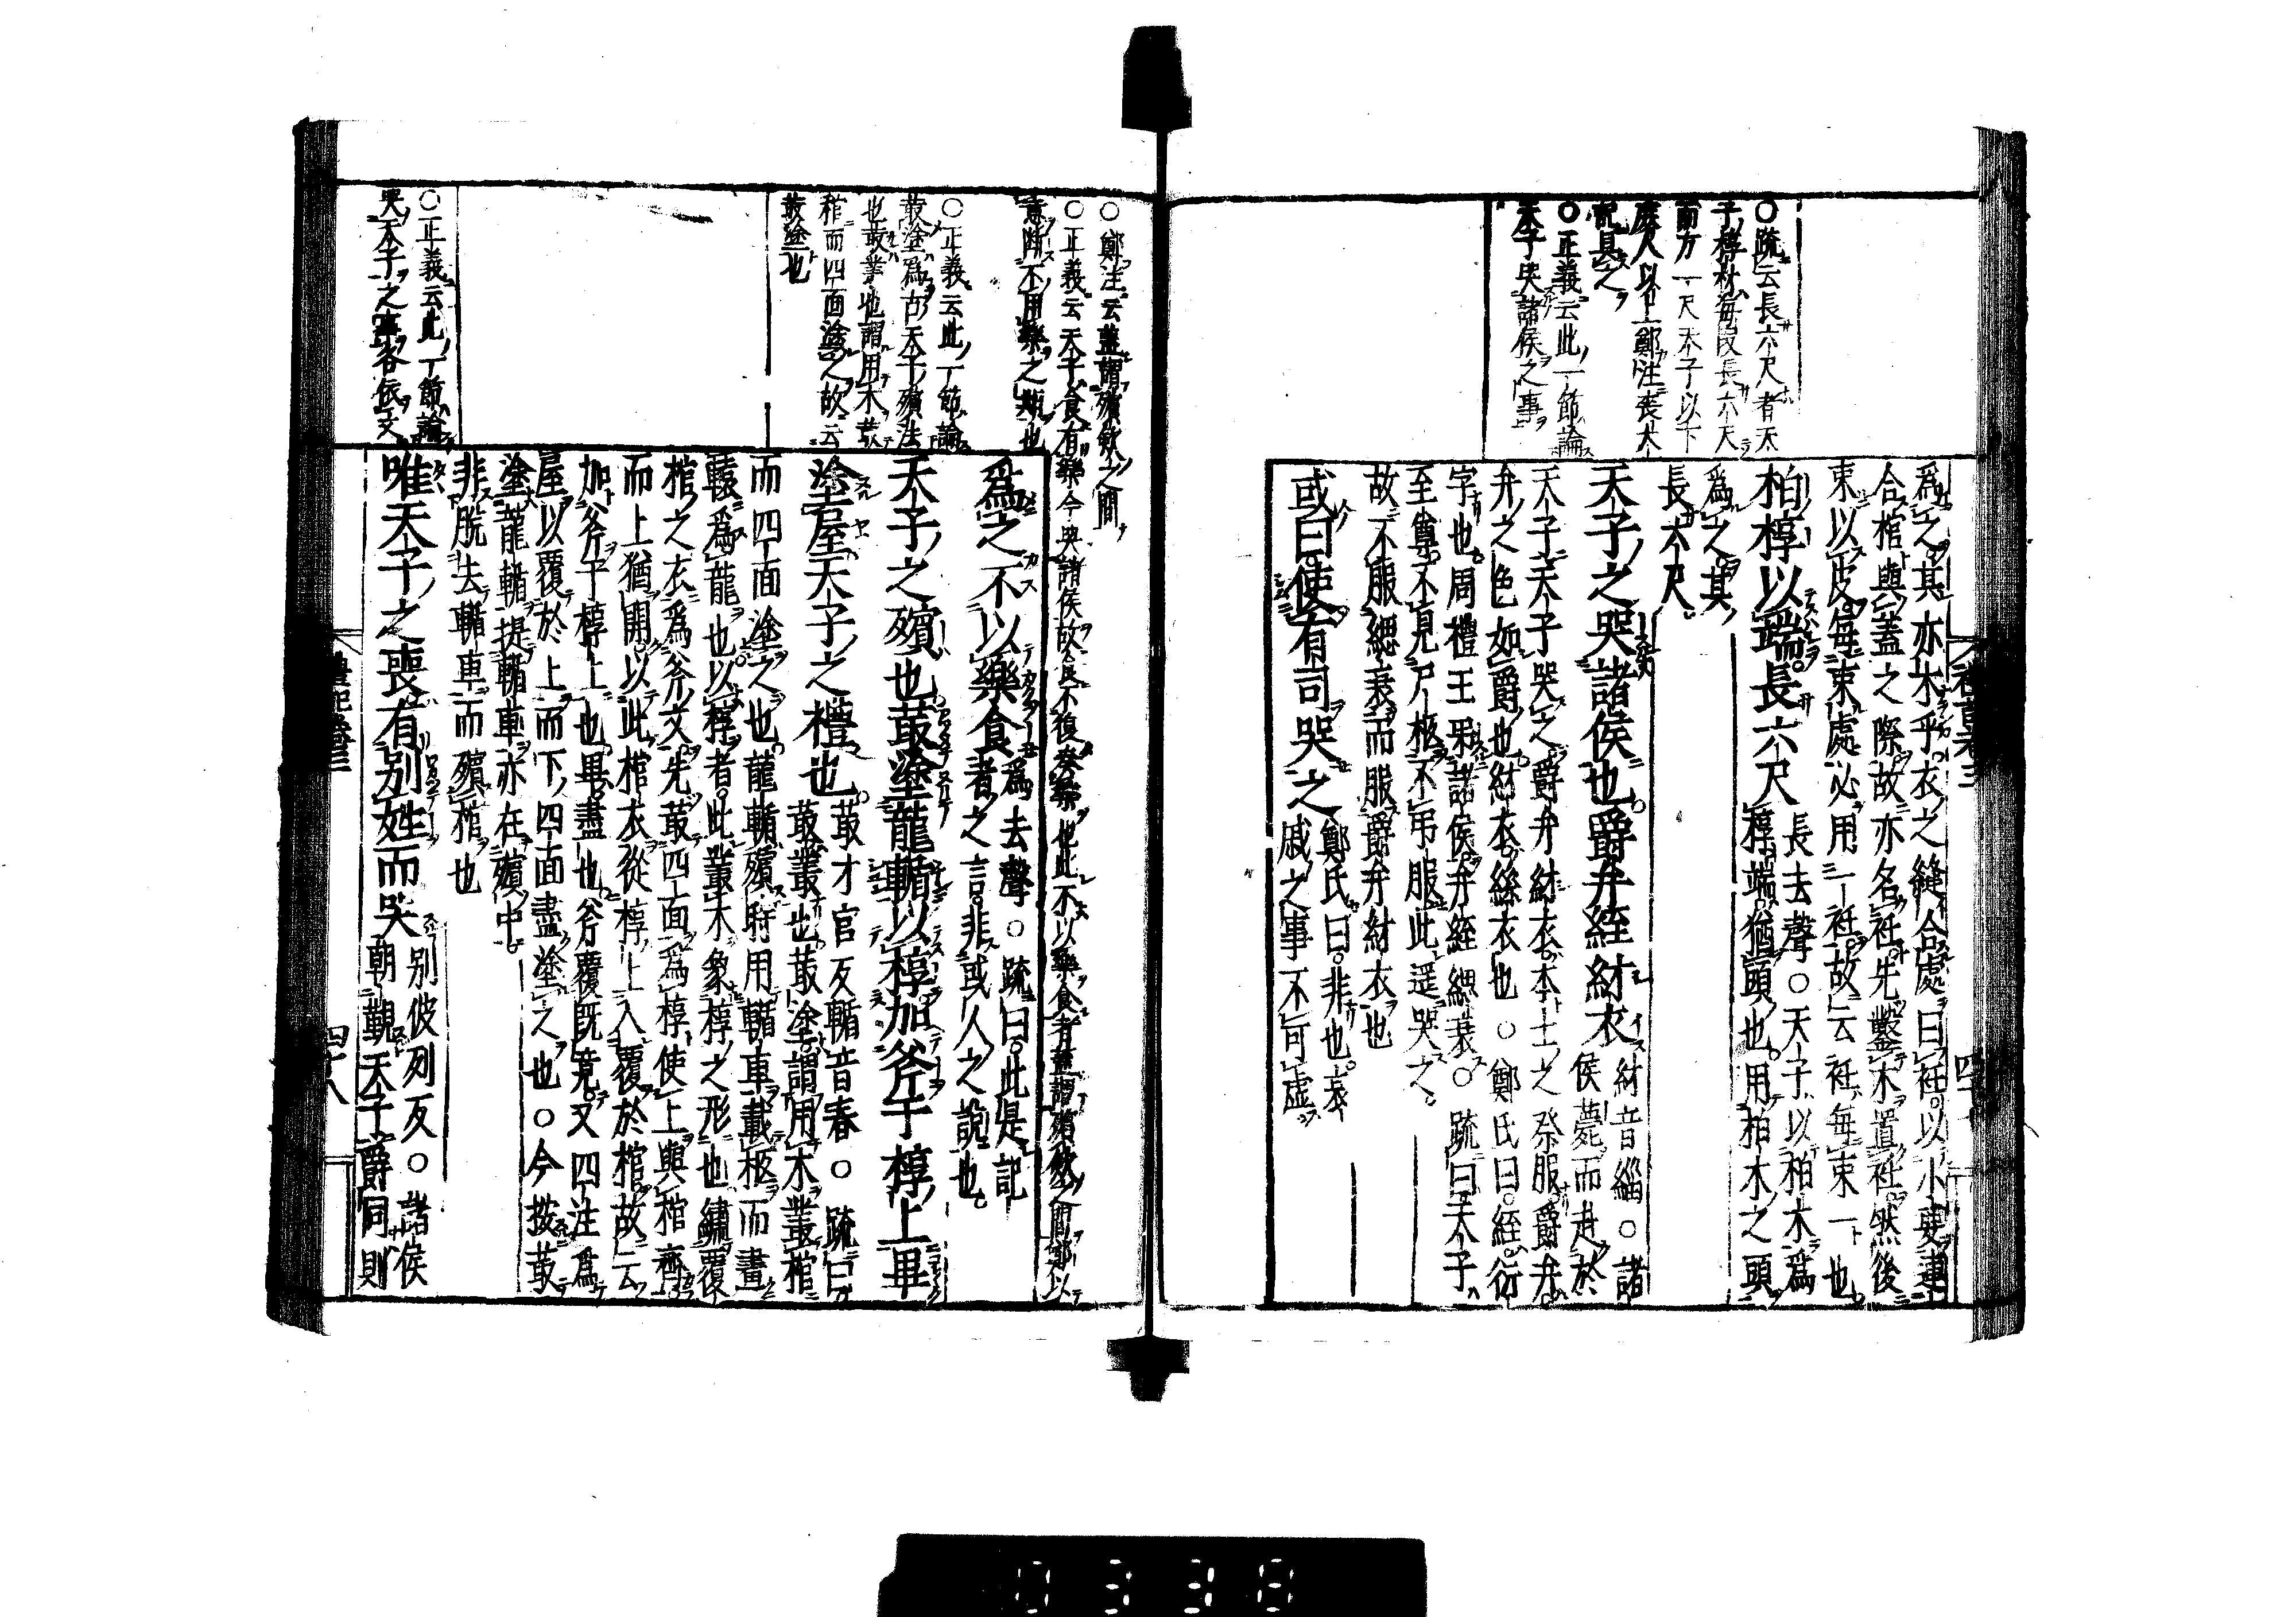 ○疏云長六尺者天
子椁材每段長六尺
而方一尺天子以下
庶人以上鄭注喪大
記具之
○正義云此一節論
天子哭諸侯之事
爲之其亦木乎衣之縫合處曰衽以小要連
合棺與蓋之際故亦名衽先鑿木置衽然後
束以皮每束處必用一衽故云衽每束一也
柏椁以端長六尺長去聲○天子以柏木爲
椁端猶頭也用柏木之頭
爲之其
長六尺
天子之哭諸侯也爵弁絰紂衣紂音緇○諸
侯薨而赴於
天子天子哭之爵弁紂衣本士之祭服爵弁
弁之色如爵也紂衣絲衣也○鄭氏曰絰衍
字也周禮王弔諸侯弁絰緦衰○疏曰天子
至尊不見尸柩不弔服此遥哭之
故不服緦衰而服爵弁紂衣也
或曰使有司哭之鄭氏曰非也哀
戚之事不可虛
○鄭注云蓋謂殯斂之間
○正義云天子食有樂今哭諸侯故食不復奏樂也此不以樂食者蓋謂殯斂之間鄭以
意斷不用樂之期也
○正義云此一節論
菆塗爲古天子殯法
也菆叢也謂用木菆
棺而四面塗之故云
菆塗也
○正義云此一節論
哭天子之事各依文
爲之不以樂食爲去聲○疏曰此是記
者之言非或人之說也
天子之殯也菆塗龍輴以椁加斧于椁上畢
塗屋天子之禮也菆才官反輴音春○疏曰
菆叢也菆塗謂用木叢棺
而四面塗之也龍輴殯時用輴車載柩而畫
轅爲龍也以椁者此叢木象椁之形也繡覆
棺之衣爲斧文先菆四面爲椁使上與棺齊
而上猶開以此棺衣從椁上入覆於棺故云
加斧于椁上也畢盡也斧覆既竟又四注爲
屋以覆於上而下四面盡塗之也○今按菆
塗龍輴提輴車亦在殯中
非脫去輴車而殯棺也
唯天子之喪有別姓而哭別彼列反○諸侯
朝覲天子爵同則
四十八